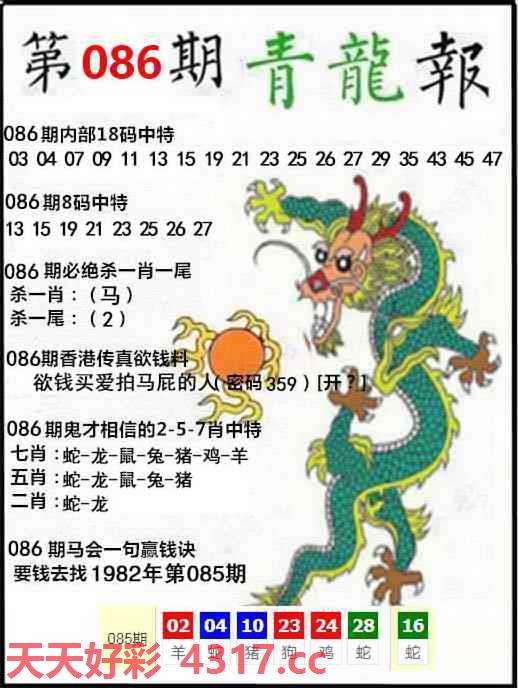 第086期青龍報
086期内部18码中特
03 04 07 09 11 13 15 19 21 23 25 26 27 29 35 43 45 47
086期8码中特
13 15 19 21 23 25 26 27
086期必绝杀一肖一尾
杀一肖：（马）
杀一尾：（2）
086期香港传真欲钱料
欲钱买爱拍马屁的人(密码359)[开？]
086期鬼才相信的2-5-7肖中特
七肖：蛇-龙-鼠-兔-猪-鸡-羊
五肖：蛇-龙-鼠-兔-猪
二肖：蛇-龙
086期马会一句赢钱诀
要钱去找1982年第085期
085期 02 04 10 23 24 28 16
羊 蛇 猪 狗 鸡 蛇 蛇
天天好彩 4317.cc